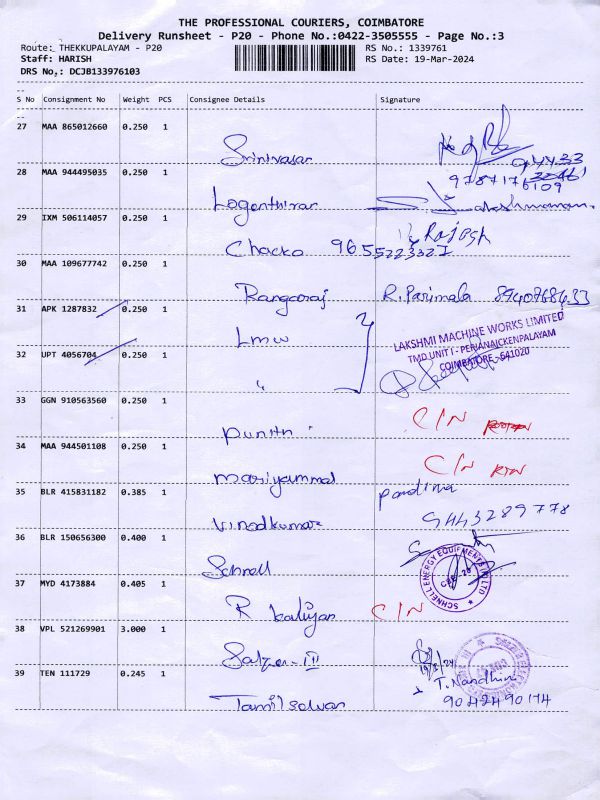 THE PROFESSIONAL COURIERS, COIMBATORE
Delivery Runsheet - P20 - Phone No.:0422-3505555 - Page No.:3
Route: THEKKUPALAYAM - P20 RS No.: 1339761
Staff: HARISH RS Date: 19-Mar-2024
DRS No,: DCJB133976103
S No Consignment No Weight PCS Consignee Details Signature
27 MAA 865012660 0.250 1
Srinivasan
28 MAA 944495035 0.250 1 9787176109
Logenthiran S. Lakshmanan
29 IXM 506114057 0.250 1
Rajesh
Chacko 9655223327
30 MAA 109677742 0.250 1
Rangaraj R. Parimala 8940768433
31 APK 1287832 0.250 1
Lmw
LAKSHMI MACHINE WORKS LIMITED
TMD UNIT I - PERIANAICKENPALAYAM
COIMBATORE - 641020
32 UPT 4056704 0.250 1
"
33 GGN 910563560 0.250 1 C/N
Punith
34 MAA 944501108 0.250 1 C/N RTN
Mariyammal
35 BLR 415831182 0.385 1 pandima
Vinodkumar 9443289778
36 BLR 150656300 0.400 1
Schnell
SCHNELL ENERGY EQUIPMENTS (P) LTD
37 MYD 4173884 0.405 1 C/N
R kaliyan
38 VPL 521269901 3.000 1
Salzer-III 19/3/24
39 TEN 111729 0.245 1 T. Nandhini
Tamilselvan 9042490174